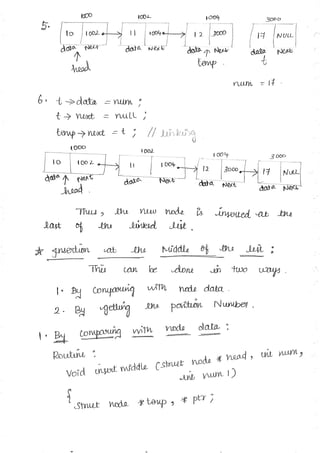 1000 1002 1004 3000
5. 10 1002 11 1004 12 3000 17 NULL
data Next data Next data Next data Next
head temp t
num = 17.
6. t → data = num ;
t → next = NULL ;
temp → next = t ; // linking
1000 1002 1004 3000
10 1002 11 1004 12 3000 17 NULL
data Next data Next data Next data Next
head
Thus, the new node is inserted at the
last of the linked list.
* Insertion at the Middle of the list :
This can be done in two ways.
1. By Comparing with node data.
2. By getting the position Number.
1. By Comparing with node data :
Routine :
Void insert middle (struct node * head, int num,
int num 1)
{
Struct node * temp, * ptr ;